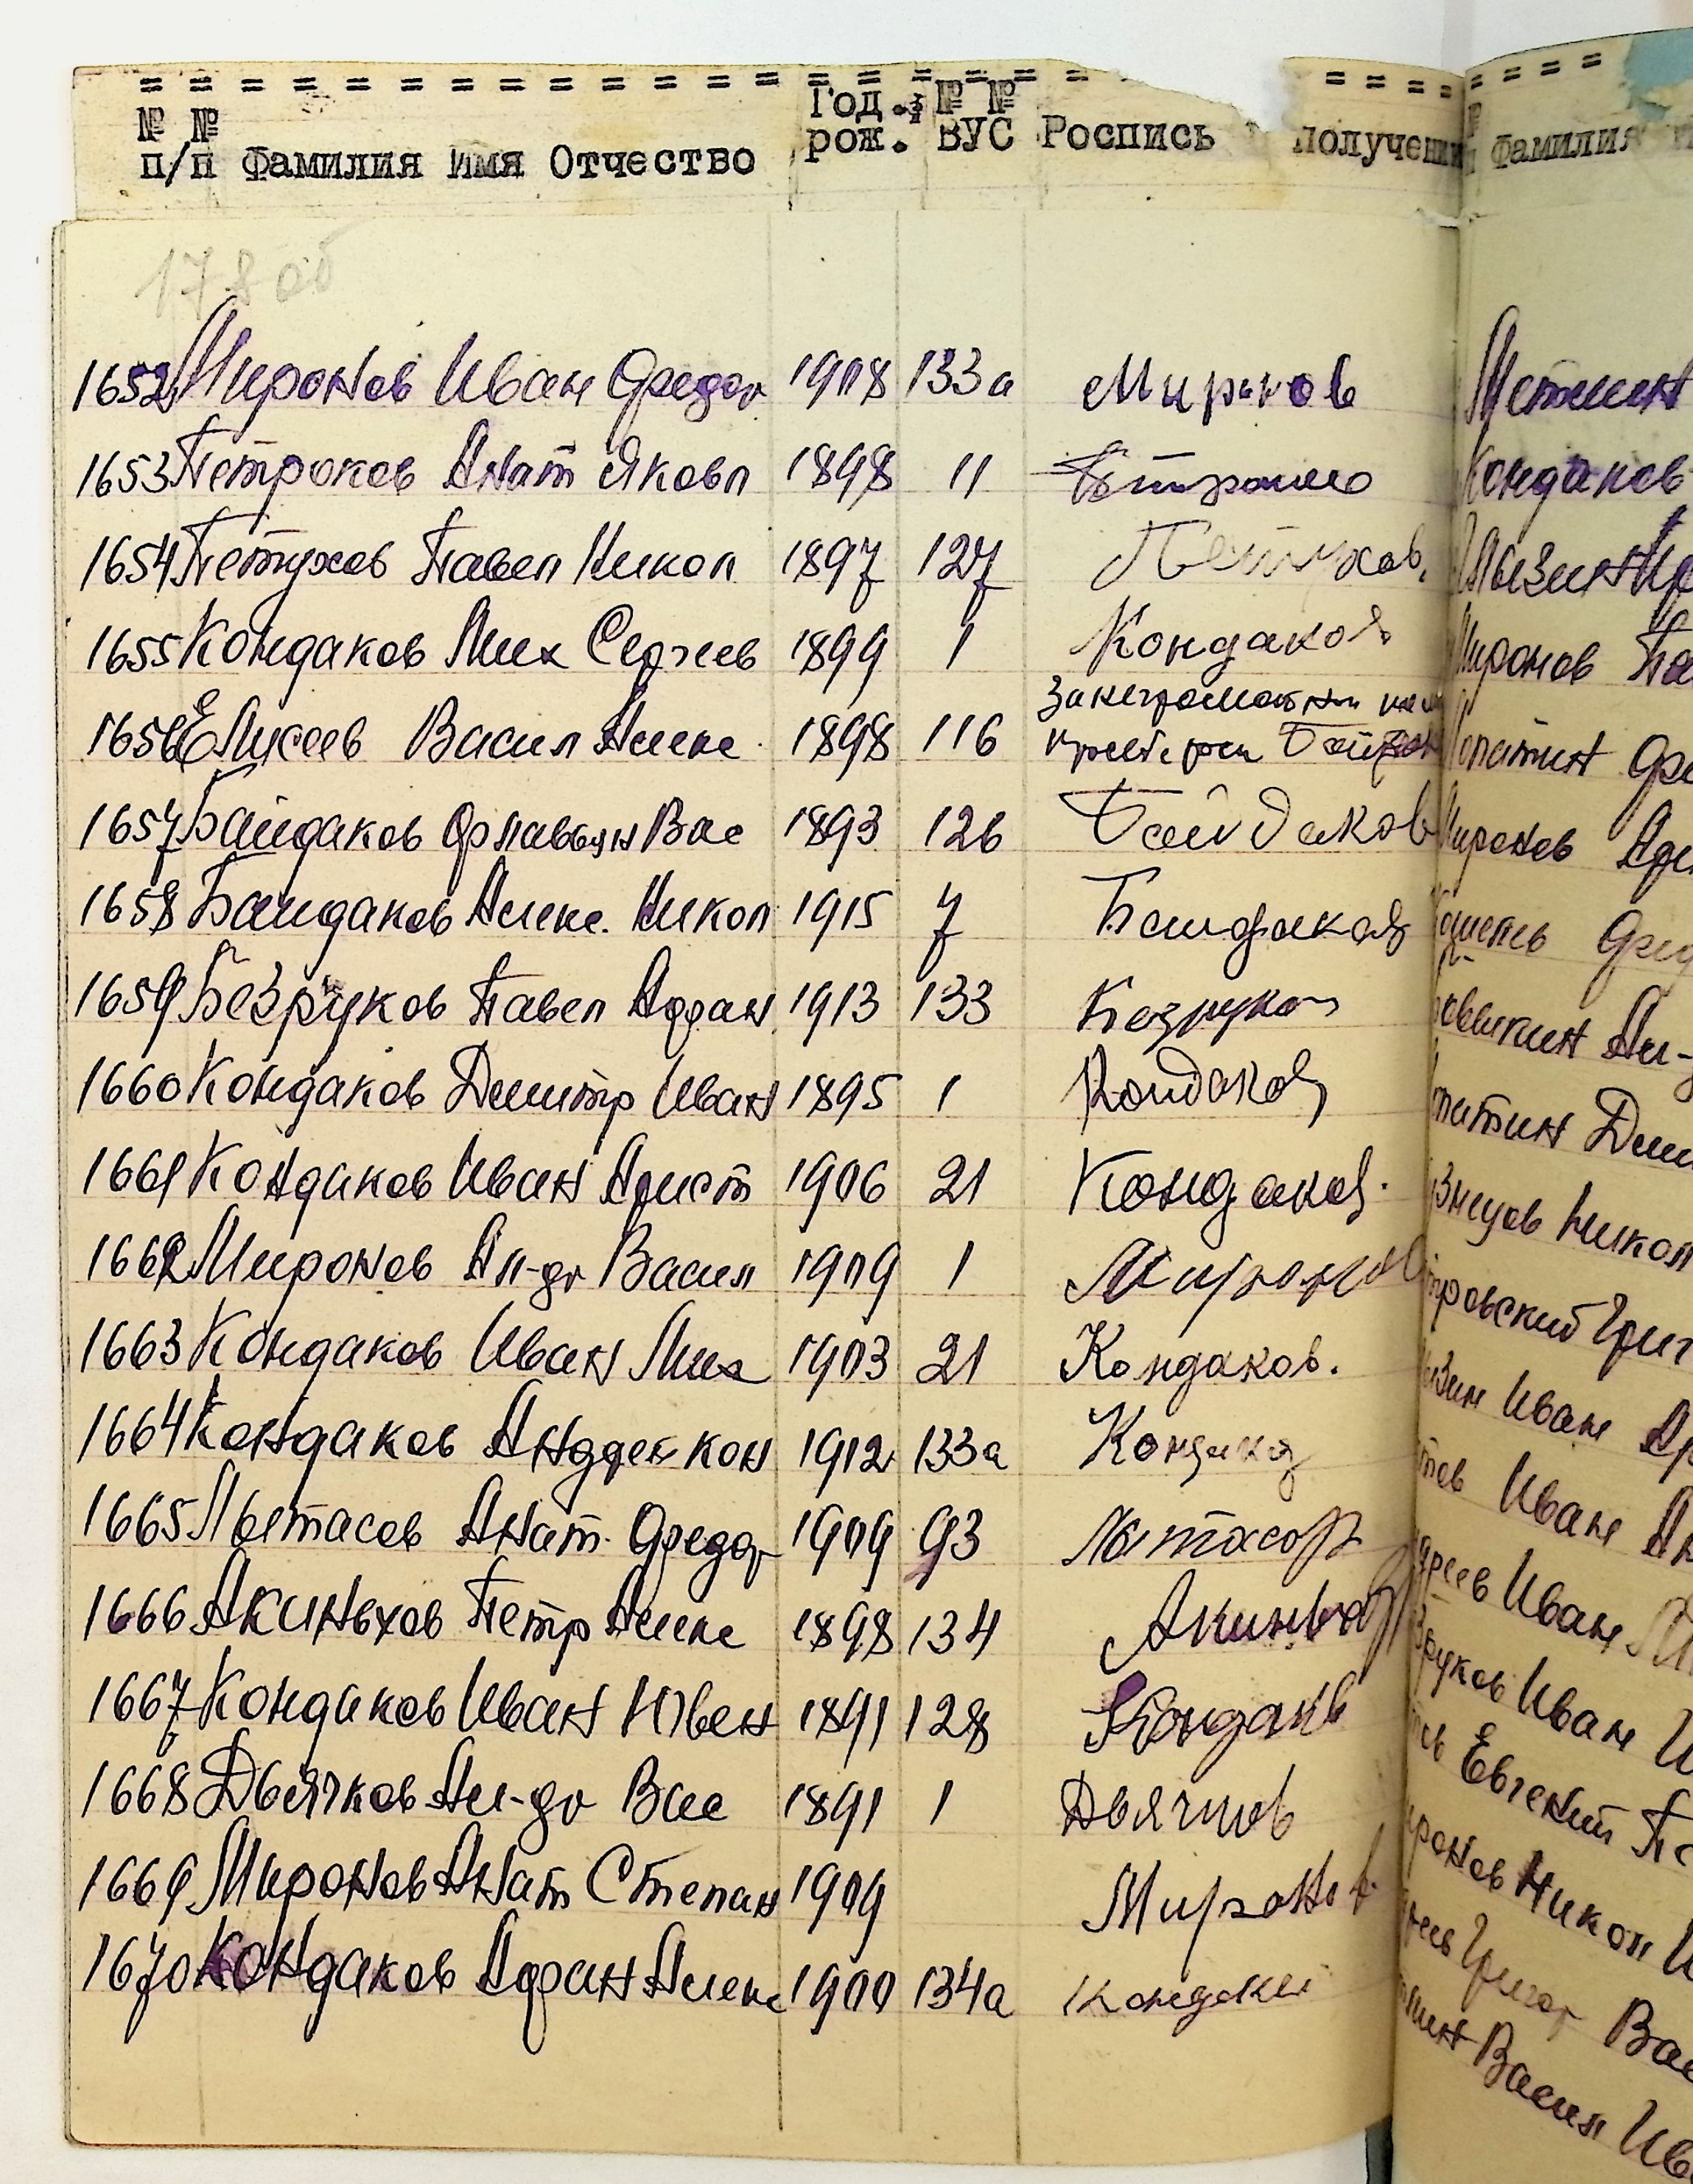 № № п/п Фамилия Имя Отчество Год. рож. № № ВУС Роспись получени
Фамилия
178 об
1652 Миронов Иван Федор 1908 133а Миронов
1653 Петроков Анат Яковл 1898 11
1654 Петухов Павел Никол 1897 127 Петухов
1655 Кондаков Мих Сергеев 1899 1 Кондаков
1656 Елисеев Васил Алекс 1898 116
1657 Байдаков Флавьян Вас 1893 126 Байдаков
1658 Байдаков Алекс. Никол 1915 7 Байдаков
1659 Безруков Павел Афан 1913 133 Безруков
1660 Кондаков Дмитр Иван 1895 1 Кондаков
1661 Кондаков Иван Арист 1906 21 Кондаков.
1662 Миронов Ал-др Васил 1909 1 Миронов
1663 Кондаков Иван Мих 1903 21 Кондаков.
1664 Кондаков 1912 133а
1665 Лытасов Анат. Федор 1909 93 Лытасов
1666 Акиньхов Петр Алекс 1898 134
1667 Кондаков Иван Ювен 1891 128
1668 Дьячков Ал-др Вас 1891 1 Дьячков
1669 Миронов Анат Степан 1909 Миронов
1670 Кондаков Афан Алекс 1900 134а
Кондаков
Миронов Па
опатин Фе
иронов
Фед
патин Дми
знецов Никол
тровский Григ
Иван
тов Иван
дреев Иван
зруков Иван
Евгений
иронов Никол
Григор Вас
Васил Ив